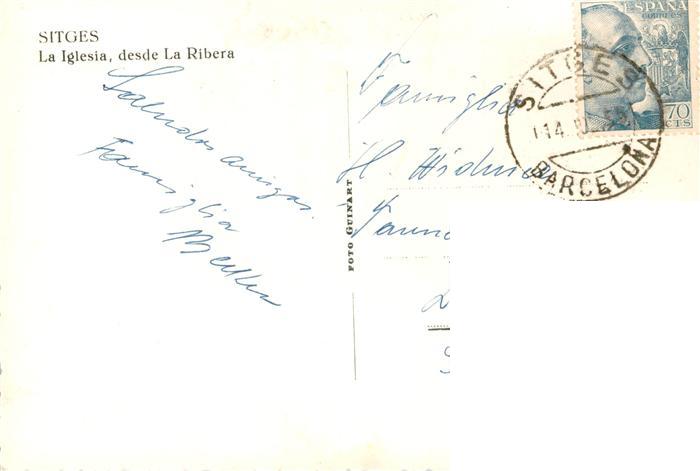 SITGES
La Iglesia, desde La Ribera
Saludos amigos.
Famiglia
FOTO GUINART
Famiglia
H.
ESPAÑA
CORREOS
70
CTS
SITGES
14.
BARCELONA